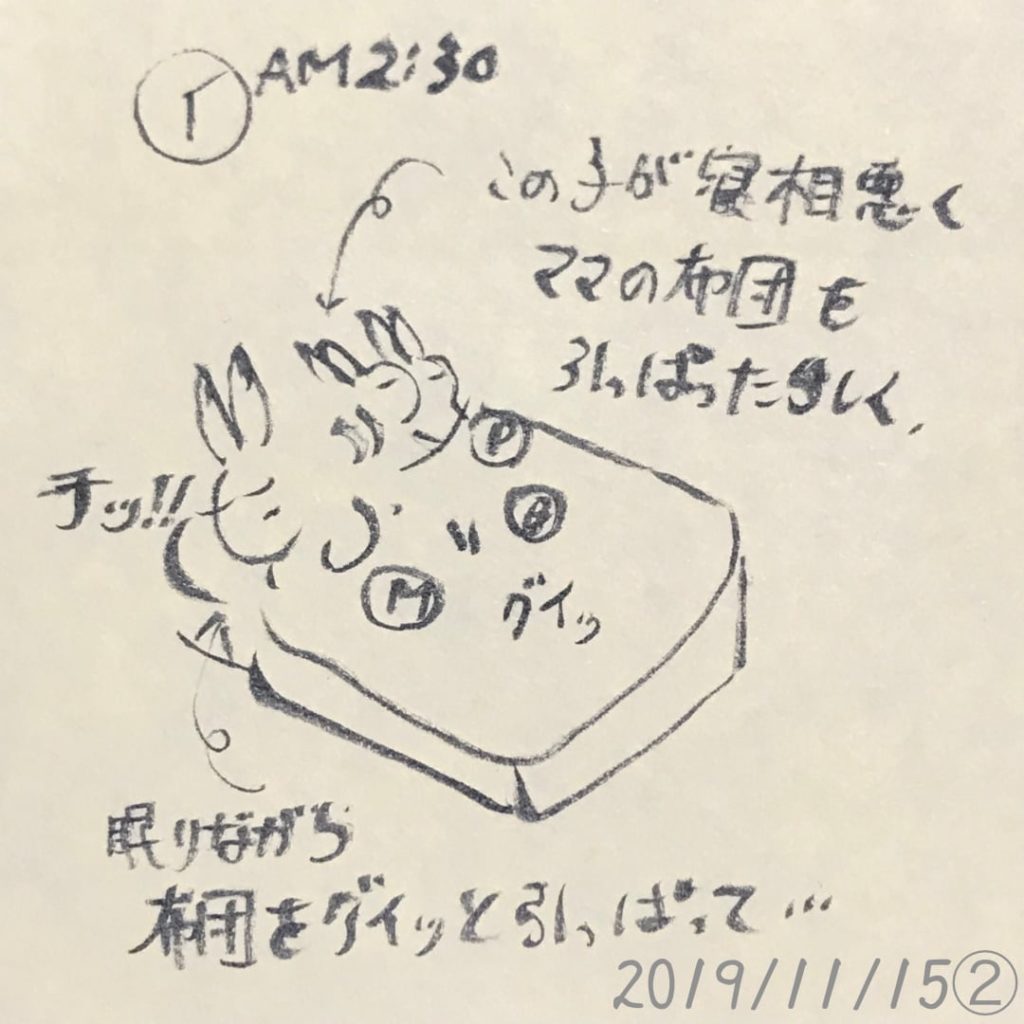 AM2:30
この子が寝相悪く
ママの布団を
引っぱったらしく、
チッ!!
P
M
グイッ
眠りながら
布団をグイッと引っぱって…
2019/11/15②